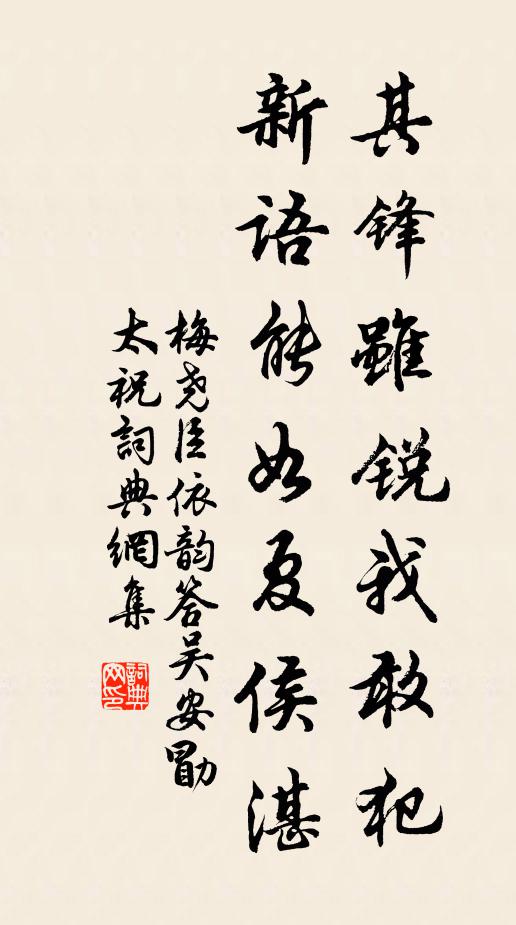 其锋雖锐我敢犯
新语能如夏侯湛
梅尧臣依韵答吴安勖
太祝詞典網集
詞典网印